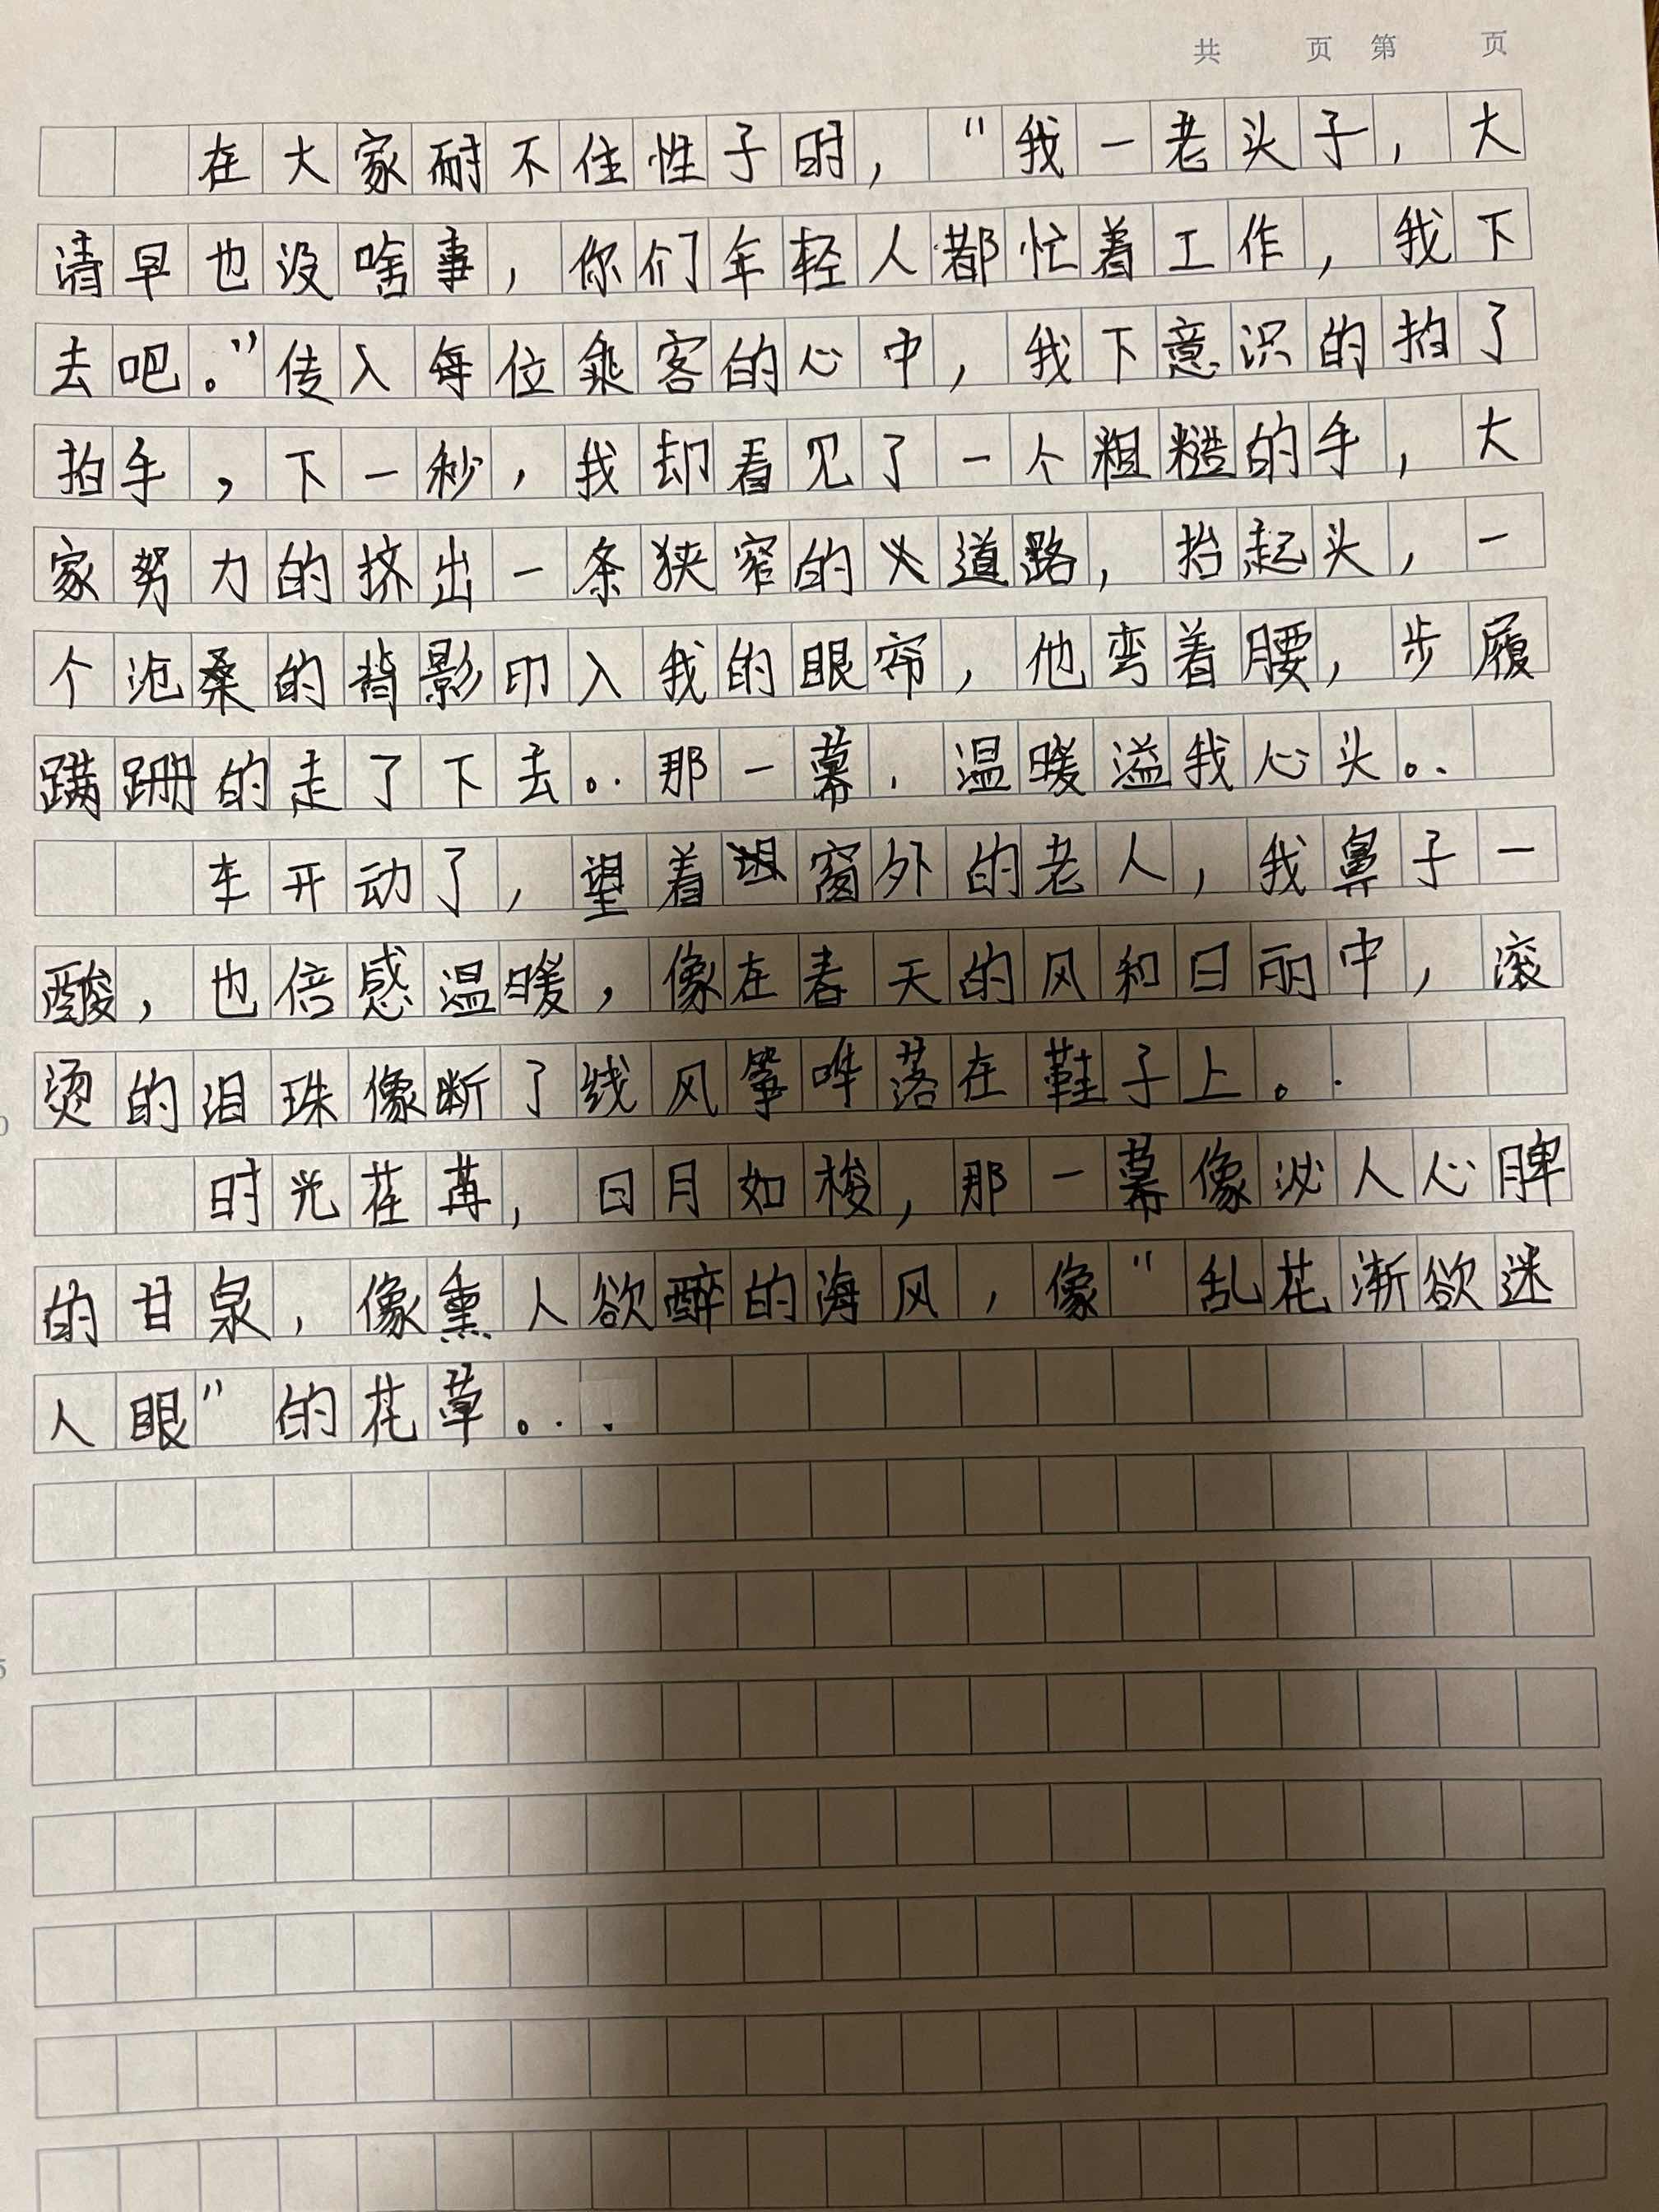 共 页 第 页
在大家耐不住性子时，“我一老头子，大
清早也没啥事，你们年轻人都忙着工作，我下
去吧。”传入每位乘客的心中，我下意识的拍了
拍手，下一秒，我却看见了一个粗糙的手，大
家努力的挤出一条狭窄的道路，抬起头，一
个沧桑的背影印入我的眼帘，他弯着腰，步履
蹒跚的走了下去。. 那一幕. 温暖溢我心头。.
车开动了，望着窗外的老人，我鼻子一
酸，也倍感温暖，像在春天的风和日丽中，滚
烫的泪珠像断了线风筝哗落在鞋子上。.
时光荏苒，日月如梭，那一幕像沁人心脾
的甘泉，像熏人欲醉的海风，像“乱花渐欲迷
人眼”的花草。..